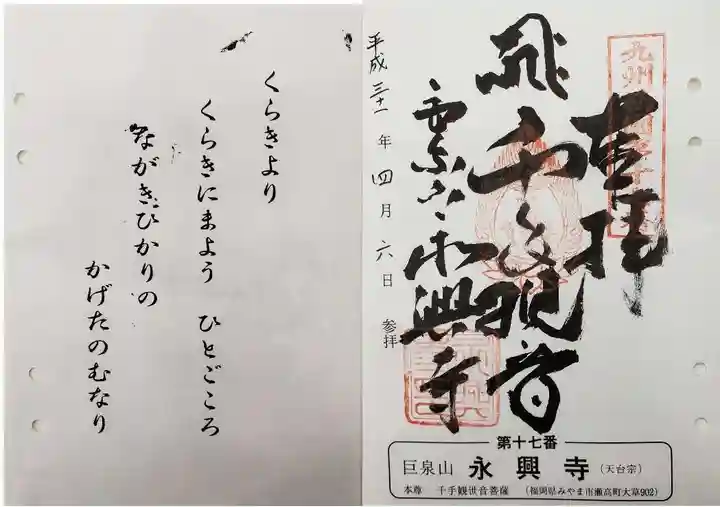 くらきより
くらきにまよう ひとごころ
ながきひかりの
かげたのむなり
奉拝
千手観音
永興寺
平成三十一年四月六日 参拝
第十七番
巨泉山 永興寺 (天台宗)
本尊 千手観世音菩薩 (福岡県みやま市瀬高町大草902)